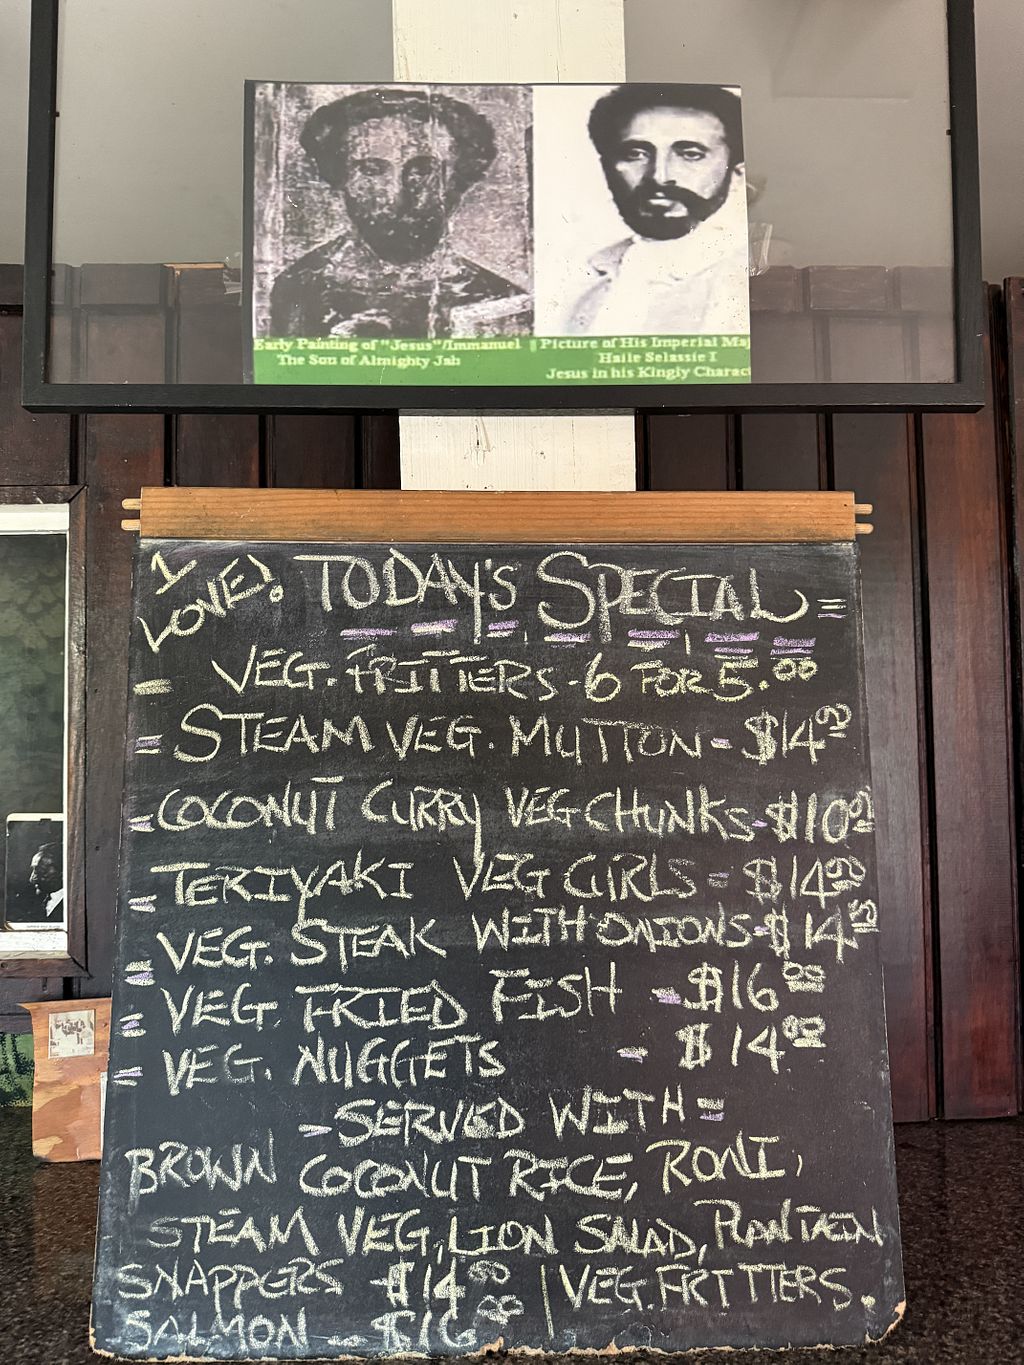 Early Painting of "Jesus"/Immanuel
The Son of Almighty Jah
Picture of His Imperial Maj
Haile Selassie I
Jesus in his Kingly Charact
1 LOVE! TODAY'S SPECIAL =
- VEG. FRITTERS - 6 FOR 5.00
= STEAM VEG. MUTTON - $14.00
- COCONUT CURRY VEG CHUNKS - $10.00
= TERIYAKI VEG CURLS = $14.00
= VEG. STEAK WITH ONIONS - $14.00
= VEG. FRIED FISH - $16.00
= VEG. NUGGETS - $14.00
- SERVED WITH =
BROWN COCONUT RICE, RONI,
STEAM VEG, LION SALAD, PLANTAIN
SNAPPERS - $14.00 | VEG. FRITTERS.
SALMON - $16.00